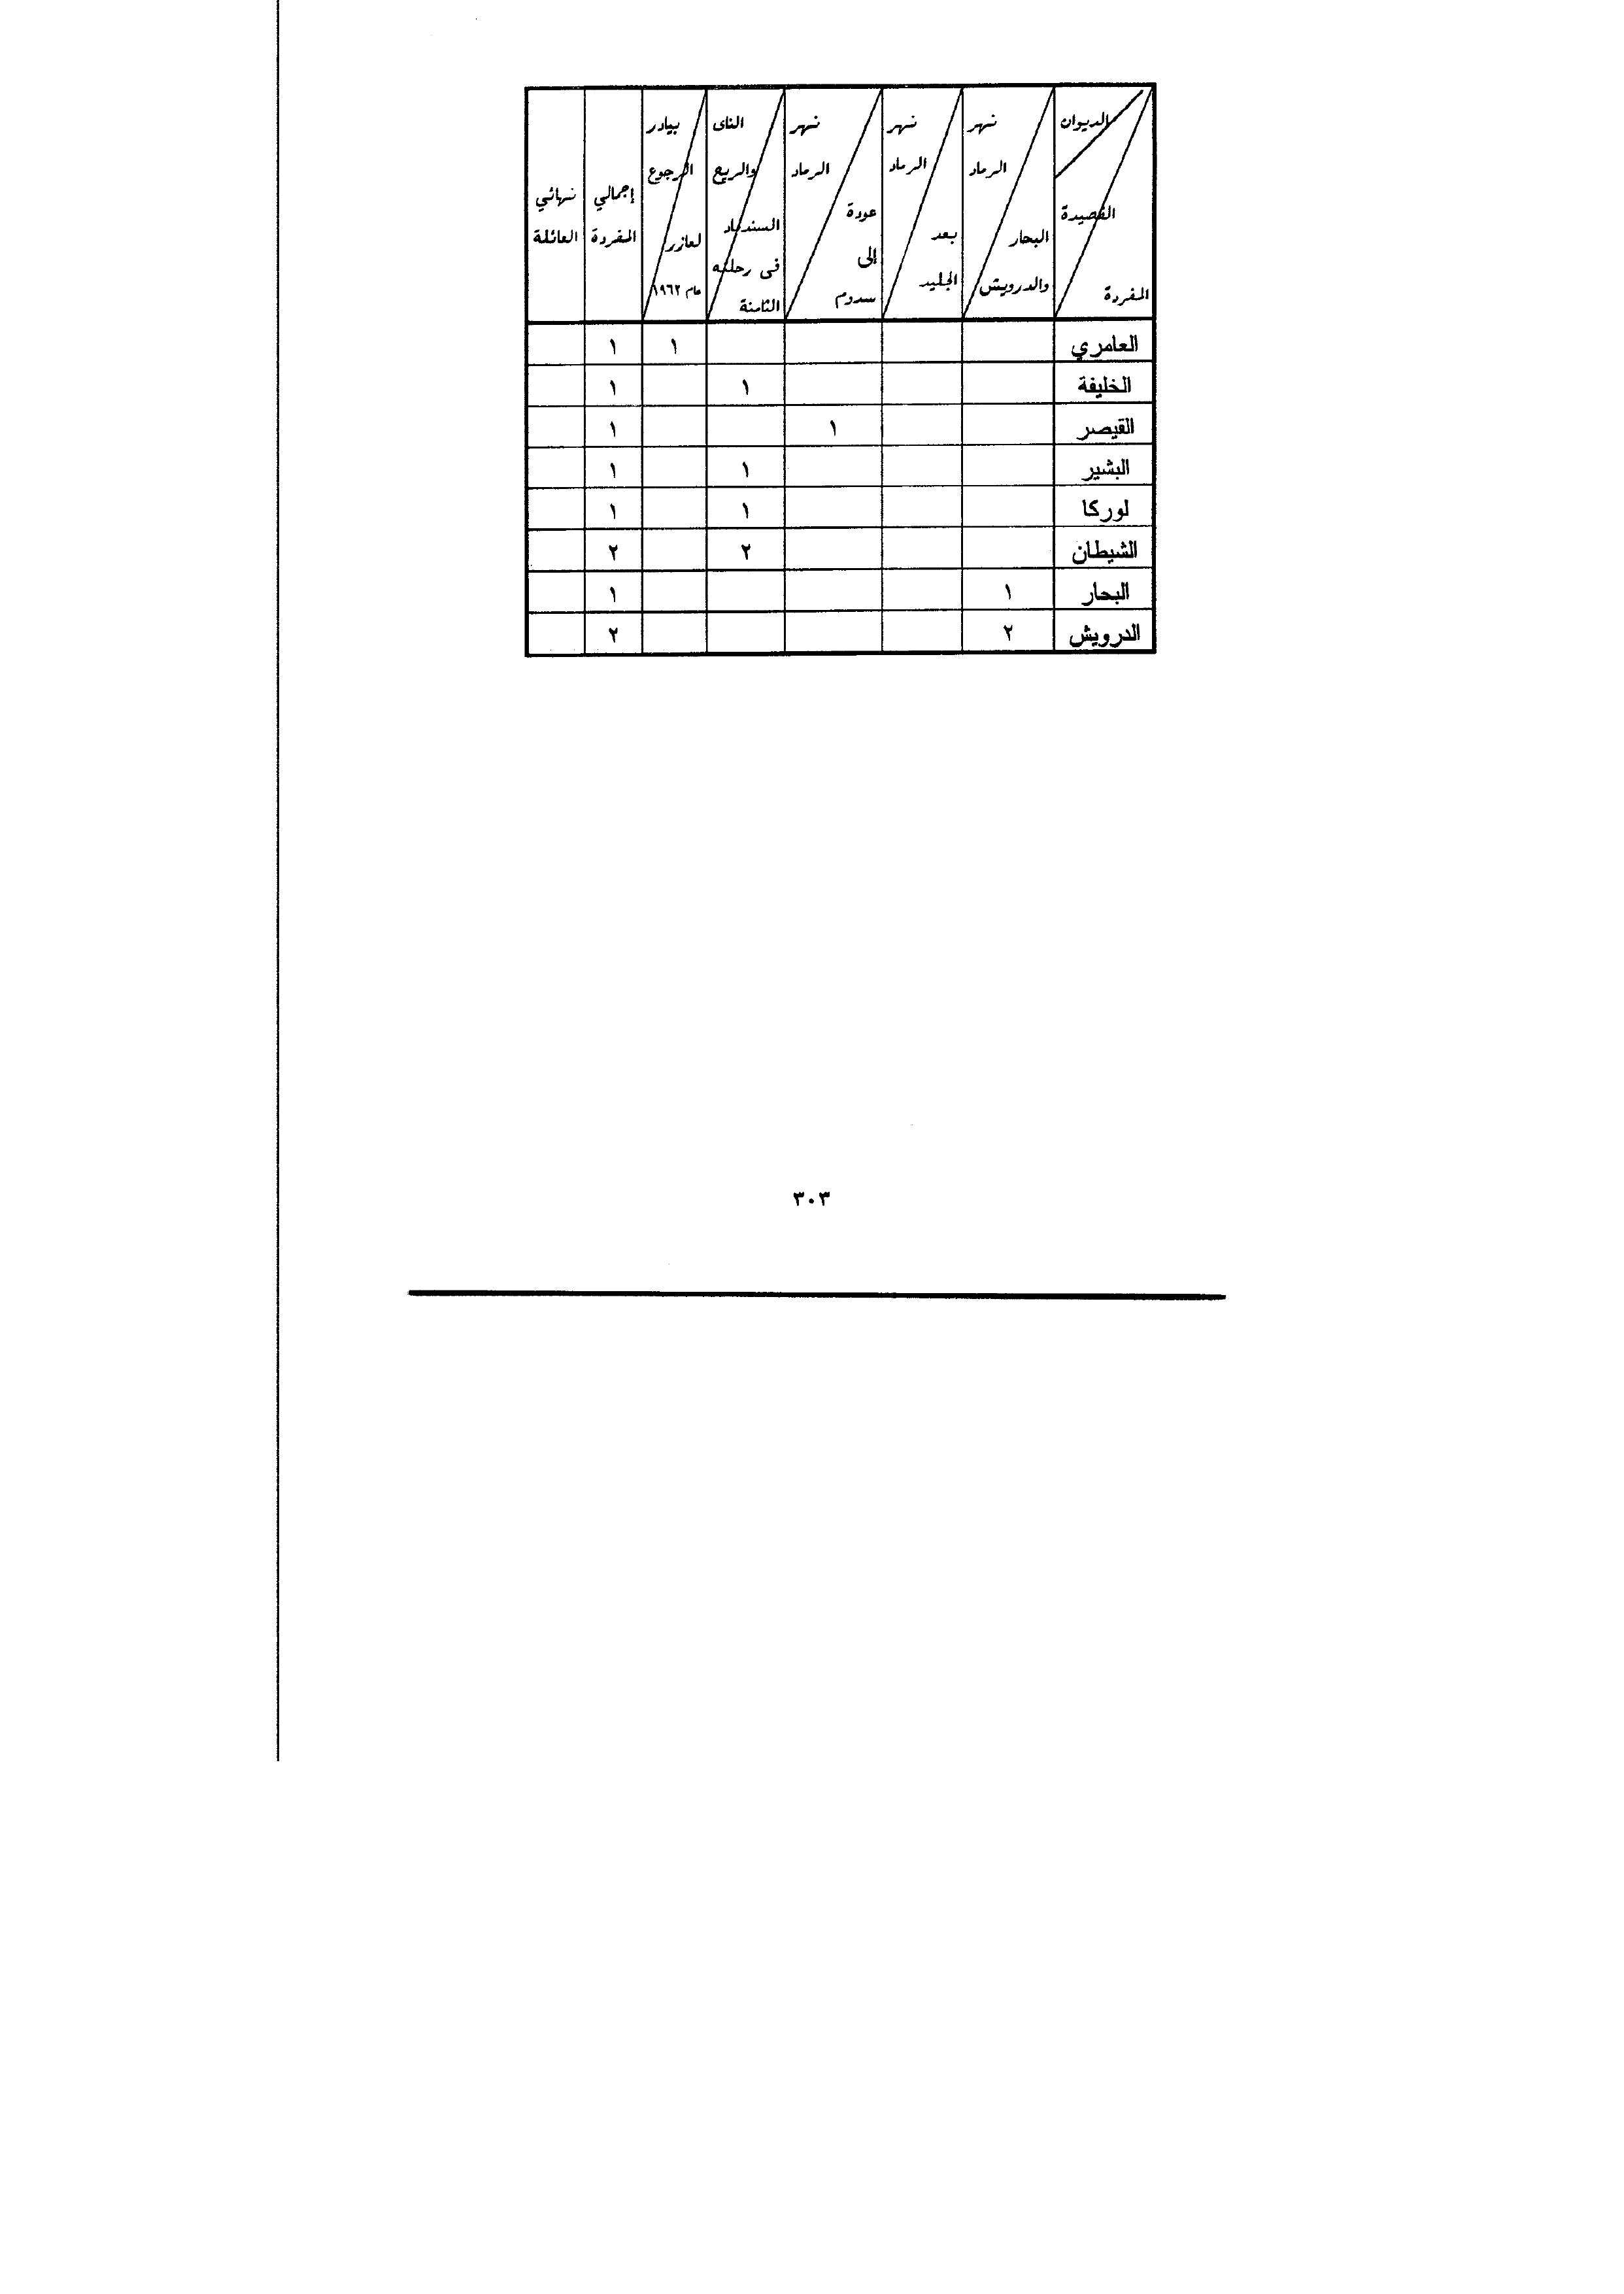 الديوان القصيدة المفردة
نهر الرماد البحار والدرويش
نهر الرماد بعد الجليد
نهر الرماد عودة إلى سدوم
الناى والريح السندباد فى رحلته الثامنة
بيادر الرجوع لعازر عام ١٩٦٢
إجمالي المفردة
نهائي العائلة
العامري ١ ١
الخليفة ١ ١
القيصر ١ ١
البشير ١ ١
لوركا ١ ١
الشيطان ٢ ٢
البحار ١ ١
الدرويش ٢ ٢
٣٠٣